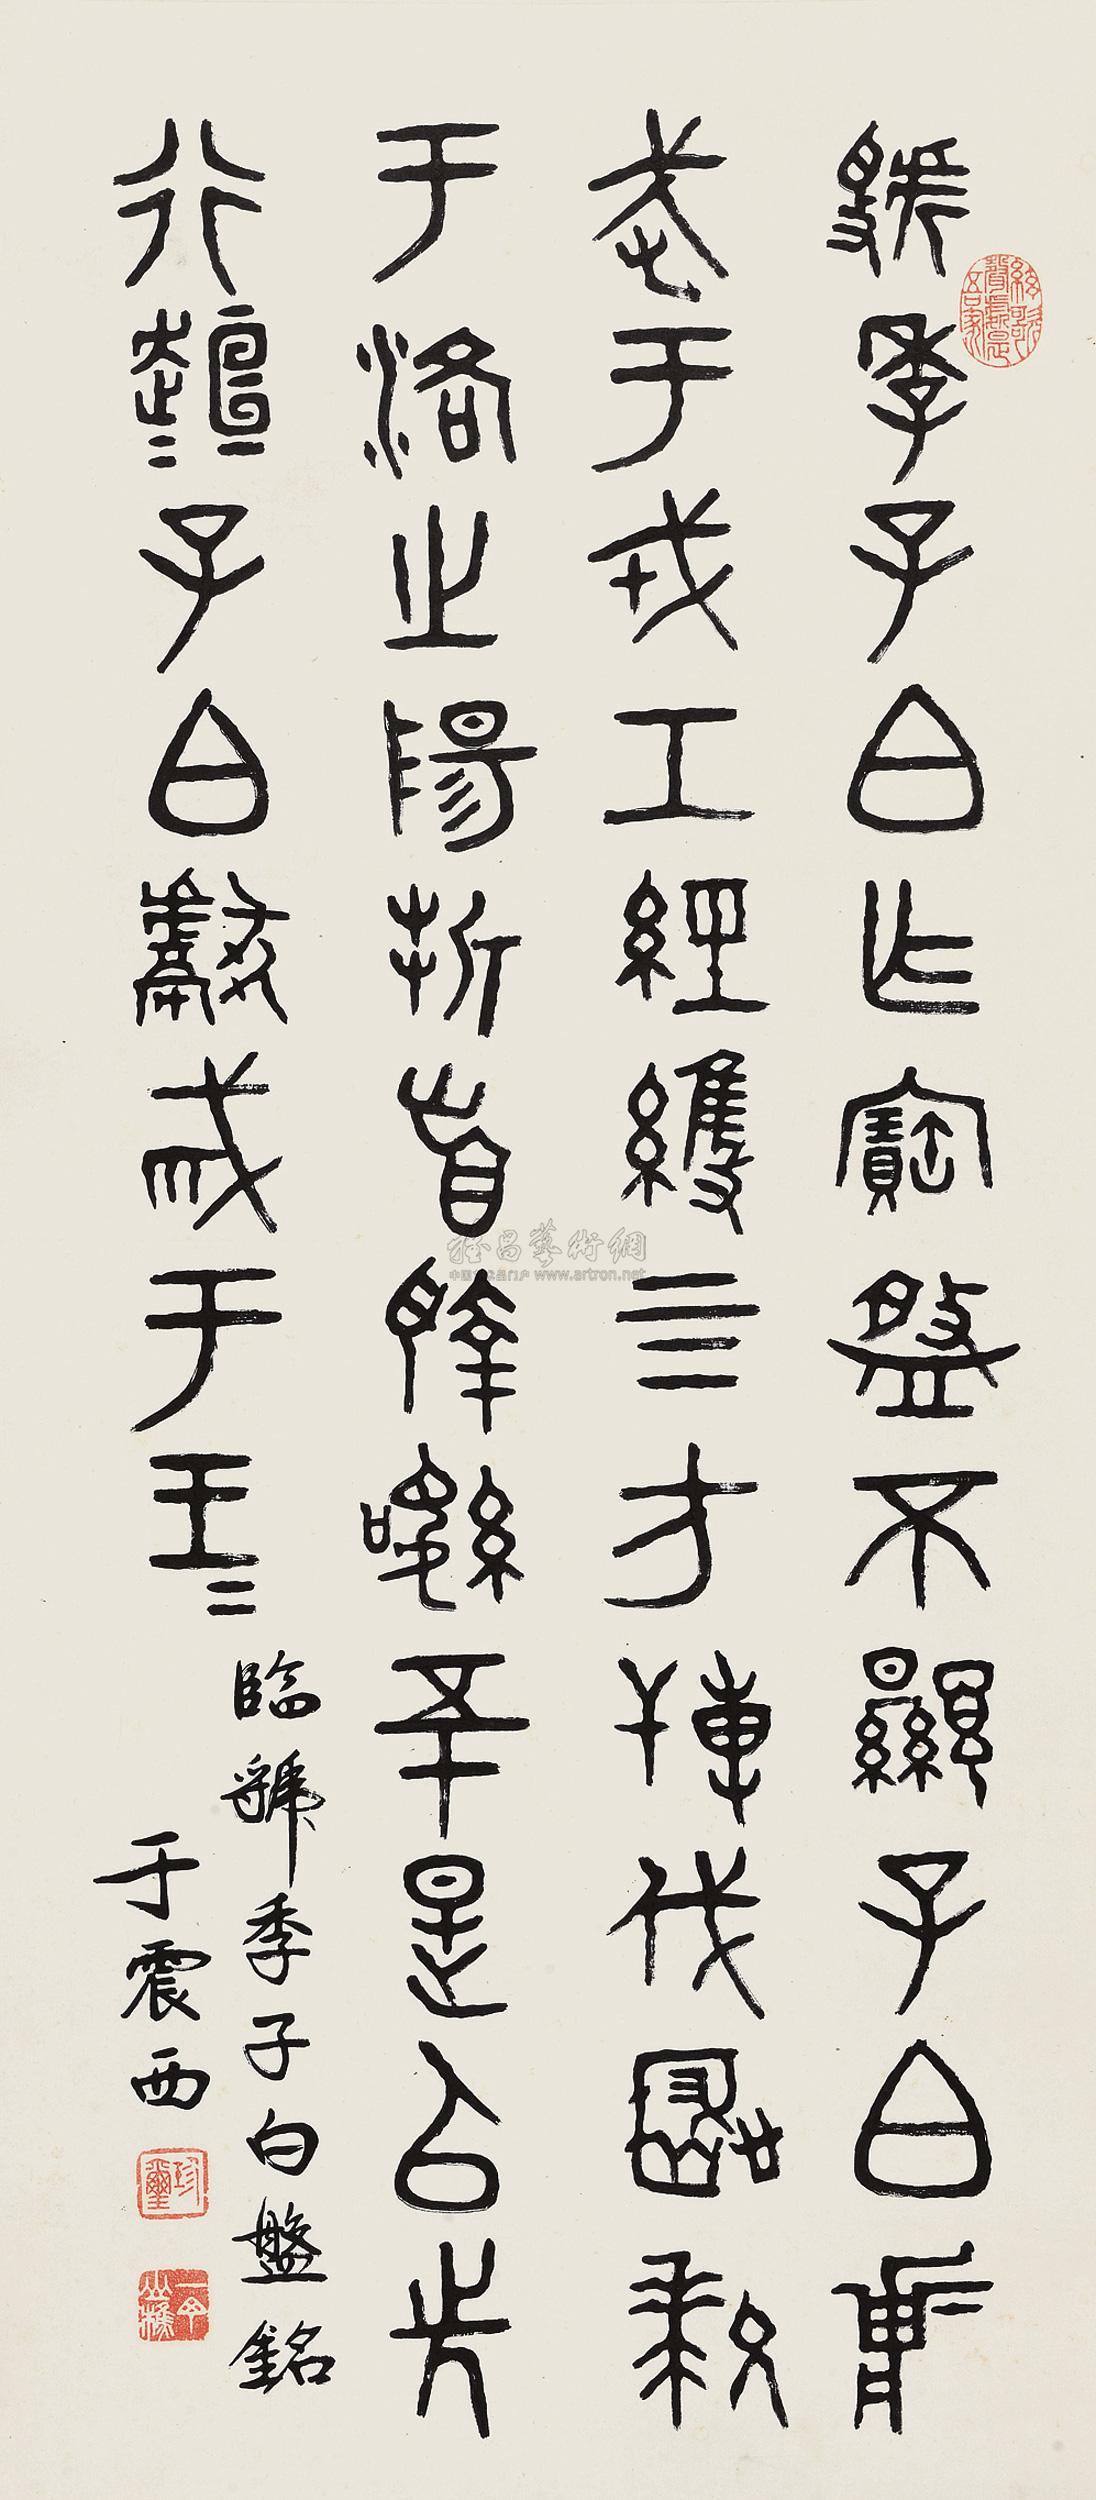 虢季子白乍寶盤不顯子白壯
武于戎工經維四方搏伐玁狁
于洛之陽折首執訊五十是以先
行趄=子白獻馘于王=
臨虢季子白盤銘
于震西
雅昌藝術網
www.artron.net